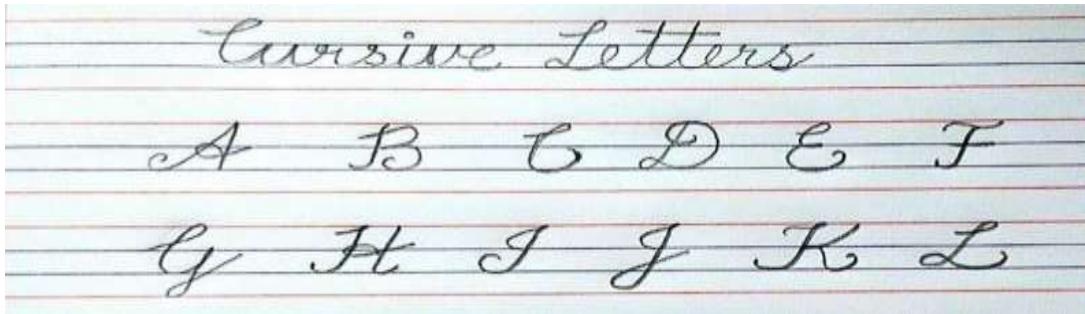 Cursive Letters
A B C D E F
G H I J K L